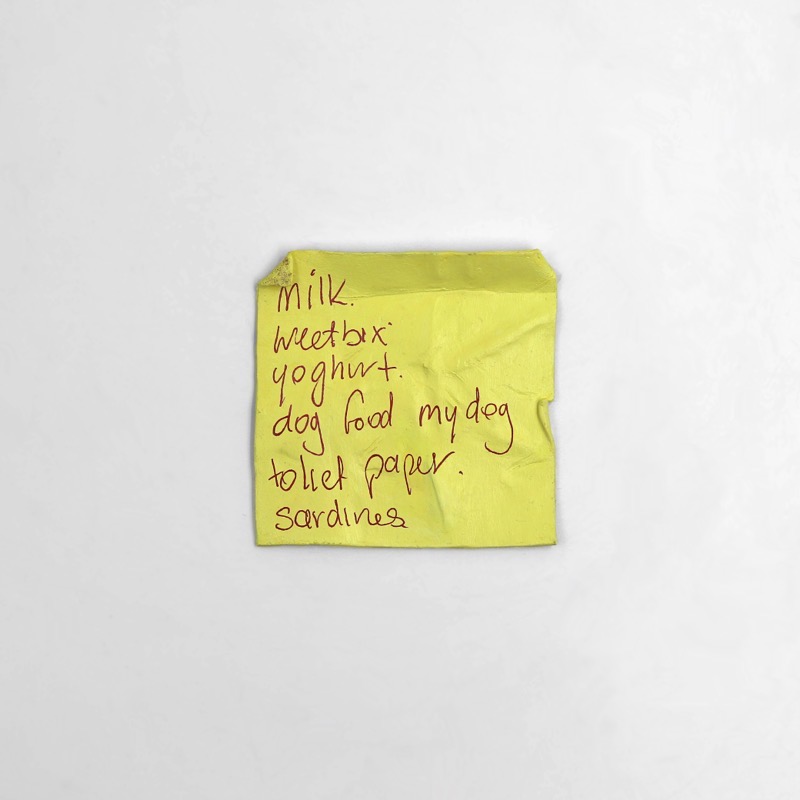 milk.
weetbix
yoghurt.
dog food my dog
toliet paper.
sardines